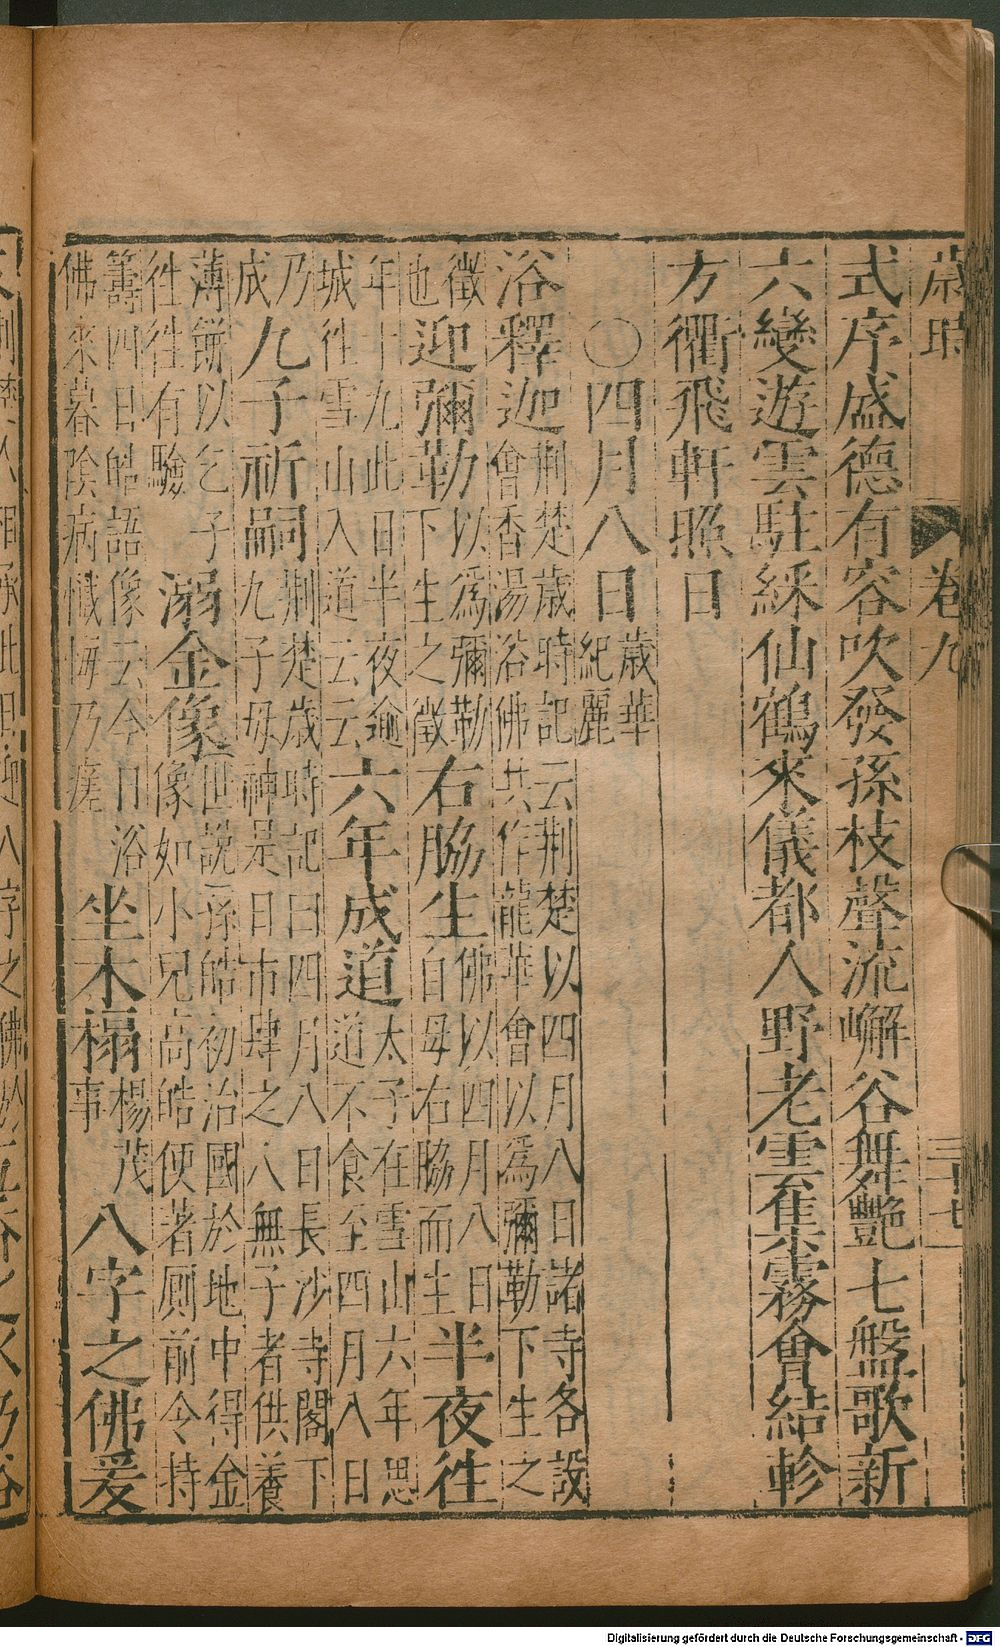 歲時 卷九 三十七
式序盛德有容吹發孫枝聲流嶰谷舞艷七盤歌新
六變遊雲駐綵仙鶴來儀都人野老雲集霧會結軫
方衢飛軒照日
〇四月八日歲華紀麗
浴釋迦荆楚歲時記云荆楚以四月八日諸寺各設會香湯浴佛共作龍華會以為彌勒下生之
徵也迎彌勒以為彌勒下生之徵右脇生佛以四月八日自母右脇而生半夜徃
年十九此日半夜逾城徃雪山入道云云六年成道太子在雪山六年思道不食至四月八日
乃成九子祈嗣荆楚歲時記曰四月八日長沙寺閣下九子母神是日市肆之人無子者供養
薄餅以乞子徃徃有驗溺金像世說孫皓初治國於地中得金像如小兒高皓便著厠前令持
籌四日皓語像云今日浴佛來暮陰病懺悔乃痊坐木榻楊茂事八字之佛爰
Digitalisierung gefördert durch die Deutsche Forschungsgemeinschaft - DFG